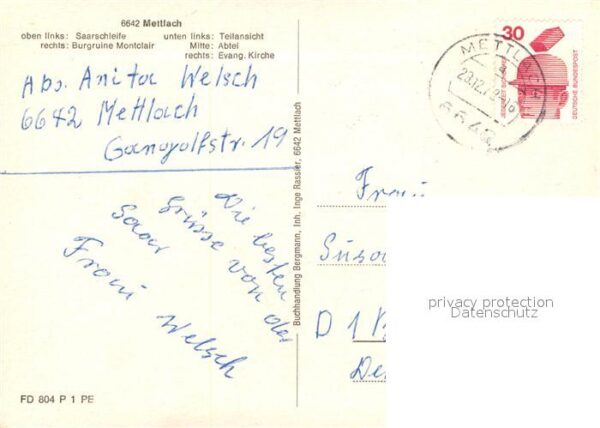 6642 Mettlach
oben links: Saarschleife unten links: Teilansicht
rechts: Burgruine Montclair Mitte: Abtei
rechts: Evang. Kirche
Abs. Anita Welsch
6642 Mettlach
Gangolfstr. 19
Die besten
Grüsse von der
Saar
Frau Welsch
FD 804 P 1 PE
Buchhandlung Bergmann, Inh. Inge Rassier, 6642 Mettlach
30
DEUTSCHE BUNDESPOST
METTLACH
6642
Frau
D 1 B
privacy protection
Datenschutz